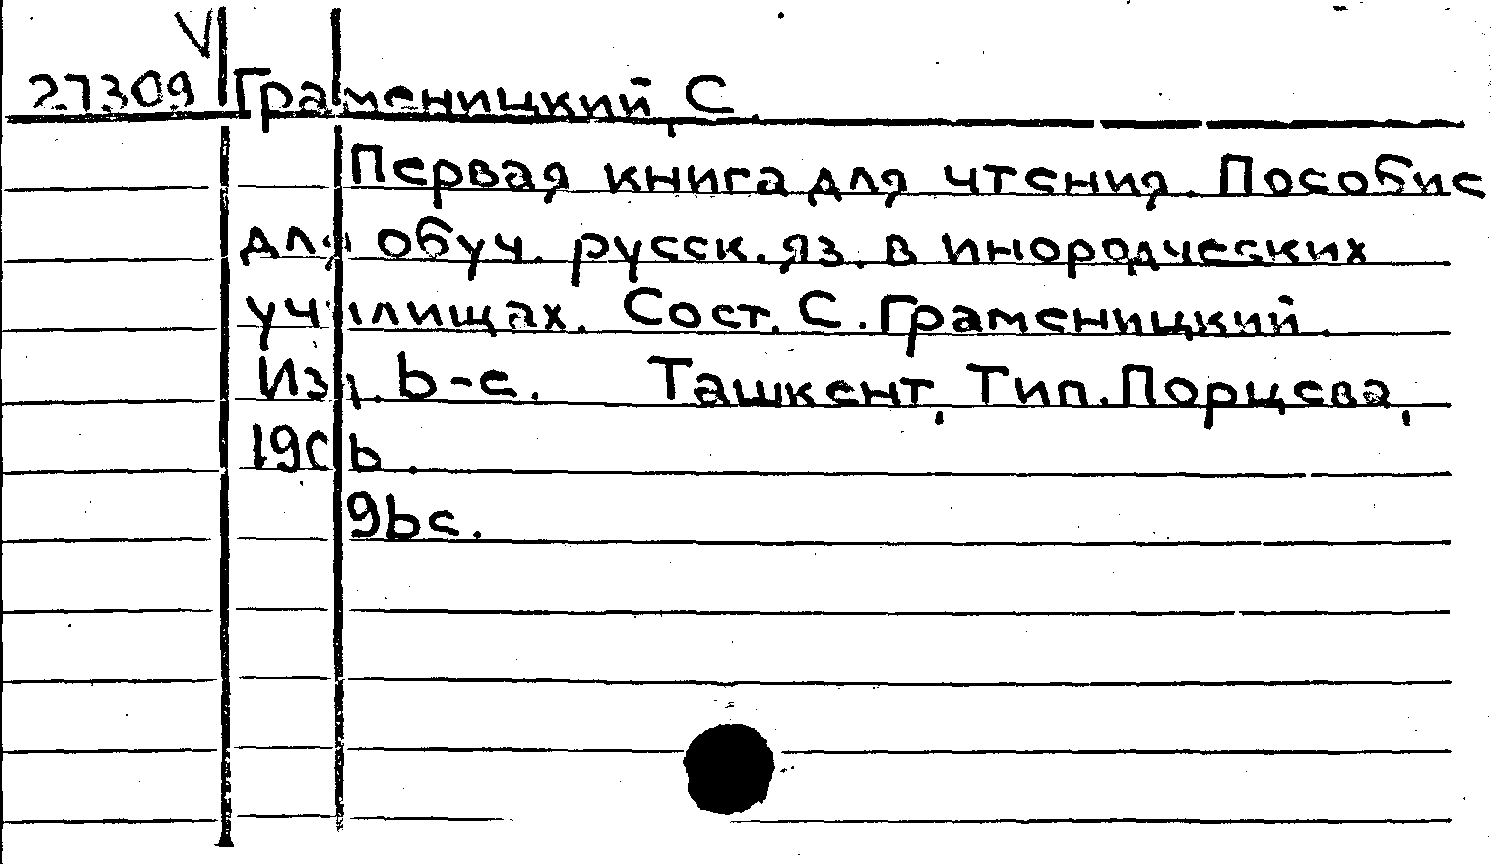 V
27309 Граменицкий, С.
Первая книга для чтения. Пособие
для обуч. русск. яз. в инородческих
училищах. Сост. С. Граменицкий.
Изд. 6-е. Ташкент, Тип. Порцева,
1906.
96с.